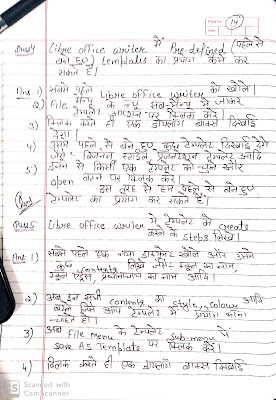 Page No.
Date
14
Que4 Libre office writer में Pre-defined (पहले से
बने हुए) templates का प्रयोग कैसे कर
सकते हैं।
Ans 1) सबसे पहले Libre office writer को खोलें।
2) File मेन्यू के न्यू सब-मेन्यू में जाकर
टेम्पलेट आप्शन पर क्लिक करें।
3) क्लिक करते ही एक डायलॉग बाक्स दिखाई
देगा।
4) उसमें पहले से बने हुए कुछ टेम्पलेट दिखाई देंगे
जैसे - बिजनेस, प्रजेन्टेशन टेम्पलेट आदि
5) इनमें से किसी एक टेम्पलेट को चुनें और
open बटन पर क्लिक करें।
इस तरह से हम पहले से बने हुए
टेम्पलेट का प्रयोग कर सकते हैं।
Que5 Libre office writer में टेम्पलेट को create
करने के steps लिखें।
Ans 1) सबसे पहले एक नया डाक्यूमेंट खोलें और उसमें
कुछ contents लिखें जैसे - स्कूल का नाम,
स्कूल एड्रेस, प्रधानाचार्य का नाम आदि।
2) अब इन सभी contents का style, colour आदि
टेम्पलेट में प्रयोग करना
चाहते हैं।
3) अब File menu के टेम्पलेट sub-menu में
save As Template पर क्लिक करें।
4) क्लिक करते ही एक डायलॉग बाक्स दिखाई
CS Scanned with
CamScanner